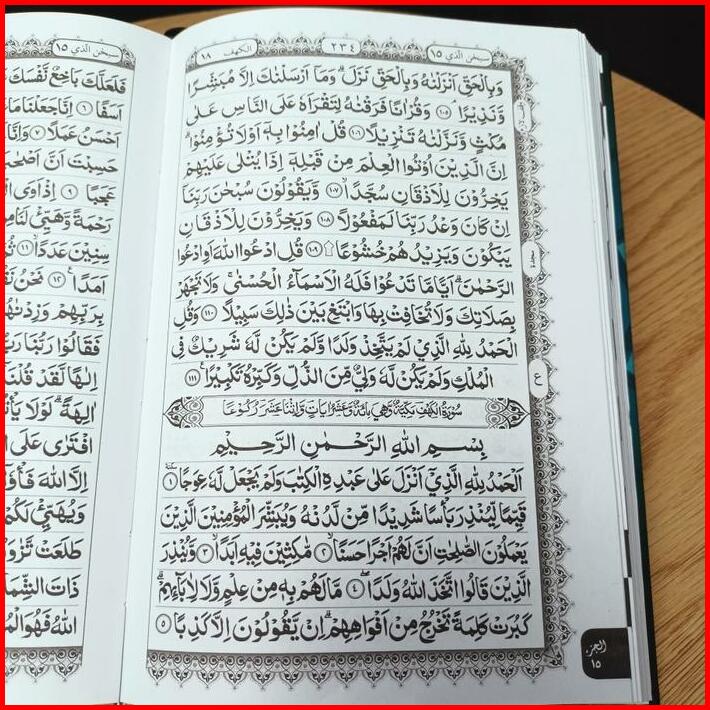 سبحٰن الذي ١٥ ٢٣٤ الكهف ١٨
وَبِالْحَقِّ اَنْزَلْنٰهُ وَبِالْحَقِّ نَزَلَ ۗ وَمَآ اَرْسَلْنٰكَ اِلَّا مُبَشِّرًا
وَّنَذِيْرًا ۘ ١٠٥ وَقُرْاٰنًا فَرَقْنٰهُ لِتَقْرَاَهٗ عَلَى النَّاسِ عَلٰى
مُكْثٍ وَّنَزَّلْنٰهُ تَنْزِيْلًا ١٠٦ قُلْ اٰمِنُوْا بِهٖٓ اَوْ لَا تُؤْمِنُوْا ۗ
اِنَّ الَّذِيْنَ اُوْتُوا الْعِلْمَ مِنْ قَبْلِهٖٓ اِذَا يُتْلٰى عَلَيْهِمْ
يَخِرُّوْنَ لِلْاَذْقَانِ سُجَّدًا ۙ ١٠٧ وَّيَقُوْلُوْنَ سُبْحٰنَ رَبِّنَآ
اِنْ كَانَ وَعْدُ رَبِّنَا لَمَفْعُوْلًا ١٠٨ وَيَخِرُّوْنَ لِلْاَذْقَانِ
يَبْكُوْنَ وَيَزِيْدُهُمْ خُشُوْعًا ۩ ١٠٩ قُلِ ادْعُوا اللّٰهَ اَوِ ادْعُوا
الرَّحْمٰنَ ۗ اَيًّا مَّا تَدْعُوْا فَلَهُ الْاَسْمَاۤءُ الْحُسْنٰى ۚ وَلَا تَجْهَرْ
بِصَلَاتِكَ وَلَا تُخَافِتْ بِهَا وَابْتَغِ بَيْنَ ذٰلِكَ سَبِيْلًا ١١٠ وَقُلِ
الْحَمْدُ لِلّٰهِ الَّذِيْ لَمْ يَتَّخِذْ وَلَدًا وَّلَمْ يَكُنْ لَّهٗ شَرِيْكٌ فِى
الْمُلْكِ وَلَمْ يَكُنْ لَّهٗ وَلِيٌّ مِّنَ الذُّلِّ وَكَبِّرْهُ تَكْبِيْرًا ࣖ ١١١
سُوْرَةُ الْكَهْفِ مَكِّيَّةٌ وَّهِيَ مِائَةٌ وَّعَشْرُ اٰيَاتٍ وَّاثْنَا عَشَرَ رُكُوْعًا
بِسْمِ اللّٰهِ الرَّحْمٰنِ الرَّحِيْمِ
اَلْحَمْدُ لِلّٰهِ الَّذِيْٓ اَنْزَلَ عَلٰى عَبْدِهِ الْكِتٰبَ وَلَمْ يَجْعَلْ لَّهٗ عِوَجًا ۜ ١
قَيِّمًا لِّيُنْذِرَ بَأْسًا شَدِيْدًا مِّنْ لَّدُنْهُ وَيُبَشِّرَ الْمُؤْمِنِيْنَ الَّذِيْنَ
يَعْمَلُوْنَ الصّٰلِحٰتِ اَنَّ لَهُمْ اَجْرًا حَسَنًا ۙ ٢ مَّاكِثِيْنَ فِيْهِ اَبَدًا ۙ ٣ وَّيُنْذِرَ
الَّذِيْنَ قَالُوا اتَّخَذَ اللّٰهُ وَلَدًا ۖ ٤ مَا لَهُمْ بِهٖ مِنْ عِلْمٍ وَّلَا لِاٰبَاۤىِٕهِمْ ۗ
كَبُرَتْ كَلِمَةً تَخْرُجُ مِنْ اَفْوَاهِهِمْ ۗ اِنْ يَّقُوْلُوْنَ اِلَّا كَذِبًا ٥
سجدة
ع
الجزء
١٥
سبحٰن الذي ١٥
فَلَعَلَّكَ بَاخِعٌ نَّفْسَكَ
اَسَفًا ٦ اِنَّا جَعَلْنَا مَا
اَحْسَنُ عَمَلًا ٧ وَاِنَّا
حَسِبْتَ اَنَّ اَصْحٰبَ
عَجَبًا ٩ اِذْ اَوَى
رَحْمَةً وَّهَيِّئْ لَنَا مِنْ
سِنِيْنَ عَدَدًا ۙ ١١
اَمَدًا ࣖ ١٢ نَحْنُ
بِرَبِّهِمْ وَزِدْنٰهُمْ
فَقَالُوْا رَبُّنَا رَبُّ
اِلٰهًا لَّقَدْ قُلْنَآ
اٰلِهَةً ۗ لَوْلَا يَأْتُوْنَ
افْتَرٰى عَلَى
اِلَّا اللّٰهَ فَأْوٗٓا
وَيُهَيِّئْ لَكُمْ
طَلَعَتْ تَّزَاوَرُ
ذَاتَ الشِّمَالِ
اللّٰهُ فَهُوَ الْمُهْتَدِ